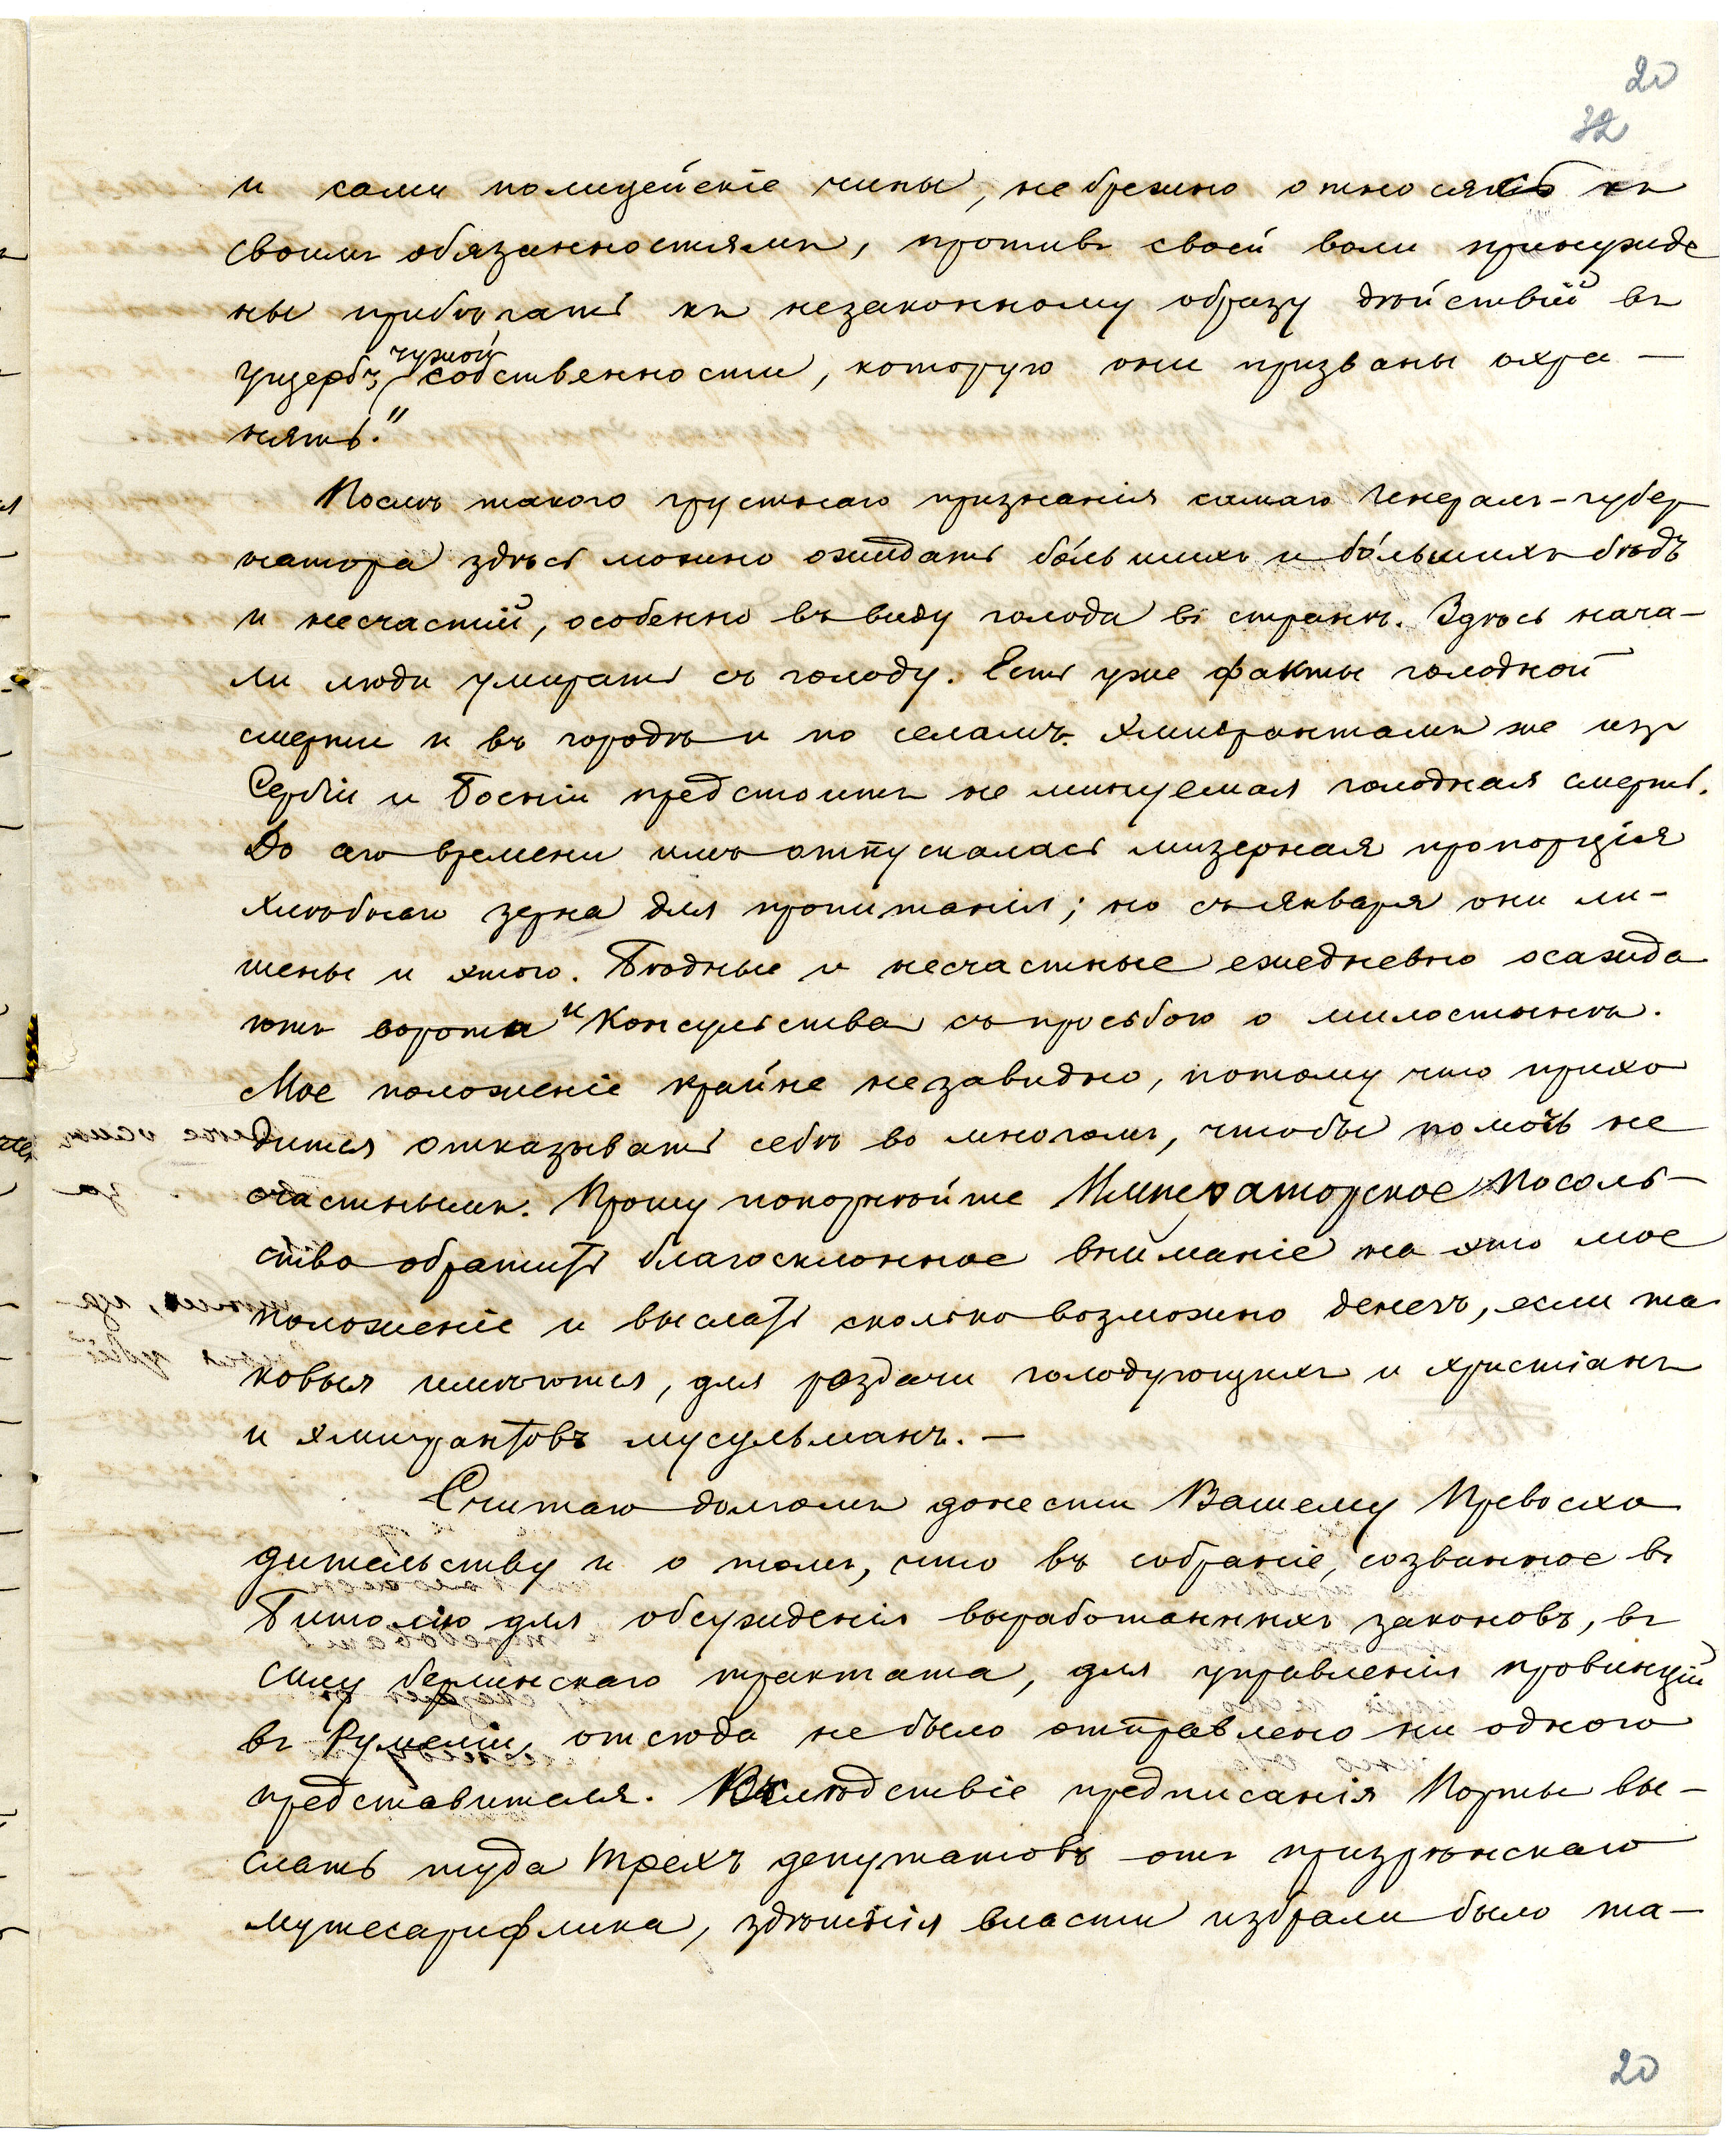 20
32
и сами полицейскіе чины, небрежно относясь къ
своимъ обязанностямъ, противъ своей воли принужде
ны прибѣгать къ незаконному образу дѣйствій въ
ущербъ чужой собственности, которую они призваны охра-
нять."
Послѣ такого грустнаго признанія самаго Генералъ-губер
натора здѣсь можно ожидать бо́льшихъ и бо́льшихъ бѣдъ
и несчастій, особенно въ виду голода въ странѣ. Здѣсь нача-
ли люди умирать съ голоду. Есть уже факты голодной
смерти и въ городѣ и по селамъ. Эмигрантамъ же изъ
Сербіи и Босніи предстоитъ неминуемая голодная смерть.
До сего времени имъ отпускалась мизерная пропорція
хлѣбнаго зерна для пропитанія; но съ Января они ли-
шены и этого. Бѣдные и несчастные ежедневно осажда
ютъ ворота Консульства съ просьбою о милостынѣ.
Мое положеніе крайне незавидно, потому что прихо
дится отказывать себѣ во многомъ, чтобы помочь не
счастнымъ. Прошу покорнѣйше Императорское Посоль-
ство обратить благосклонное вниманіе на это мое
положеніе и выслать сколько возможно денегъ, если та
ковыя имѣются, для раздачи голодующихъ и христіанъ
и эмигрантовъ мусульманъ. —
Считаю долгомъ донести Вашему Превосхо
дительству и о томъ, что въ собраніе, созванное въ
Битолію для обсужденія выработанныхъ законовъ, въ
силу берлинскаго трактата, для управленія провинцій
въ Румеліи, отсюда не было отправлено ни одного
представителя. Вслѣдствіе предписанія Порты вы-
слать туда трехъ депутатовъ отъ призрѣнскаго
мутесарифлика, здѣшнія власти избрали было та-
20